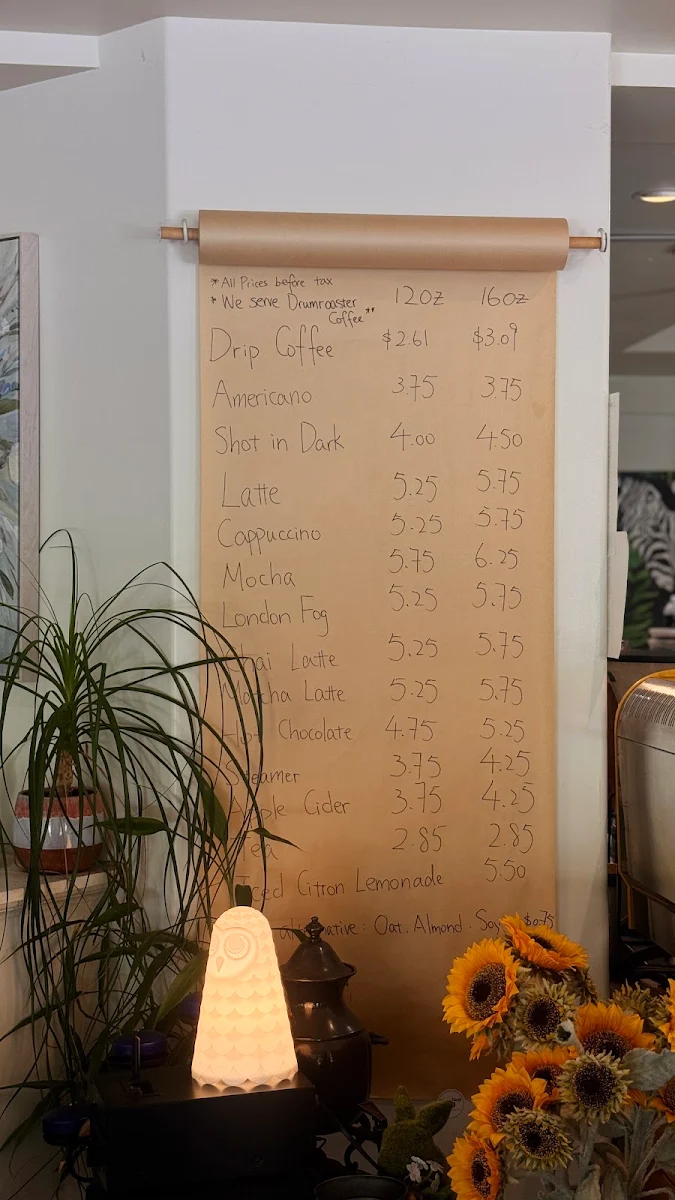 * All Prices before tax
* We serve Drumroaster Coffee** 12oz 16oz
Drip Coffee $2.61 $3.09
Americano 3.75 3.75
Shot in Dark 4.00 4.50
Latte 5.25 5.75
Cappuccino 5.25 5.75
Mocha 5.75 6.25
London Fog 5.25 5.75
Chai Latte 5.25 5.75
Matcha Latte 5.25 5.75
Hot Chocolate 4.75 5.25
Steamer 3.75 4.25
Apple Cider 3.75 4.25
Tea 2.85 2.85
Iced Citron Lemonade 5.50
alternative: Oat. Almond. Soy $0.75